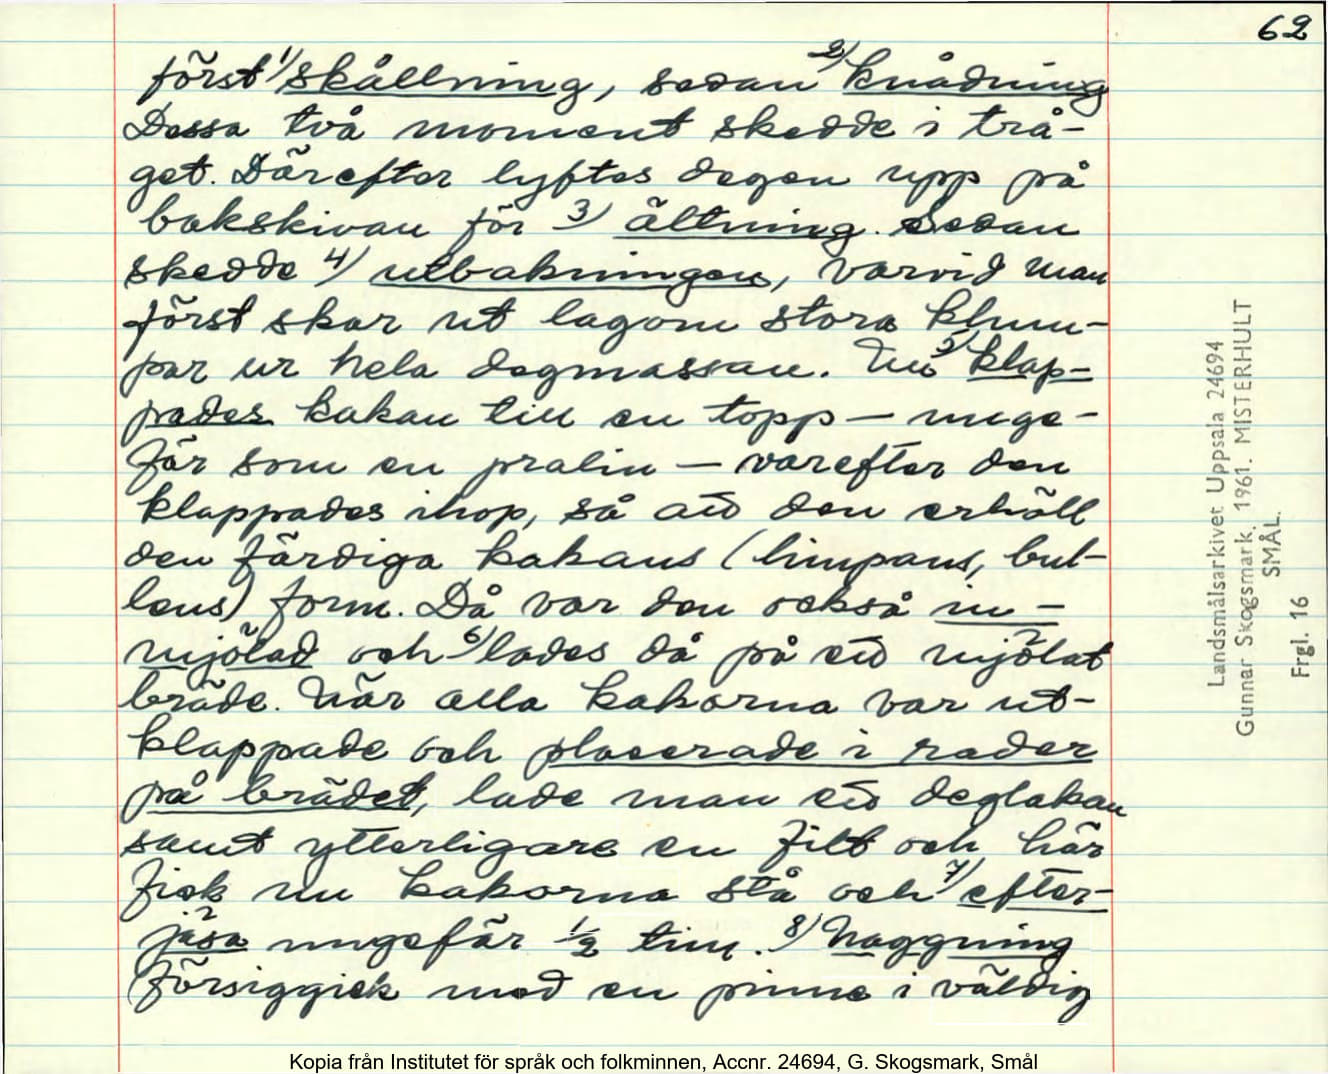 62
först 1) skållning, sedan 2) knådning
Dessa två moment skedde i trå-
get. Därefter lyftes degen upp på
bakskivan för 3) ältning. Sedan
skedde 4) utbakningen, varvid man
först skar ut lagom stora klum-
par ur hela degmassan. Nu 5) klap-
pades kakan till en topp — unge-
fär som en pralin — varefter den
klappades ihop, så att den erhöll
den färdiga kakans (limpans, bul-
lens) form. Då var den också in-
mjölad och 6) lades då på ett mjölat
bräde. När alla kakorna var ut-
klappade och placerade i rader
på brädet, lade man ett deglakan
samt ytterligare en filt och här
fick nu kakorna stå och 7) efter-
jäsa ungefär ½ tim. 8) Naggning
försiggick med en pinne i väldig
Landsmålsarkivet Uppsala 24694
Gunnar Skogsmark. 1961. MISTERHULT
SMÅL.
Frgl. 16
Kopia från Institutet för språk och folkminnen, Accnr. 24694, G. Skogsmark, Smål